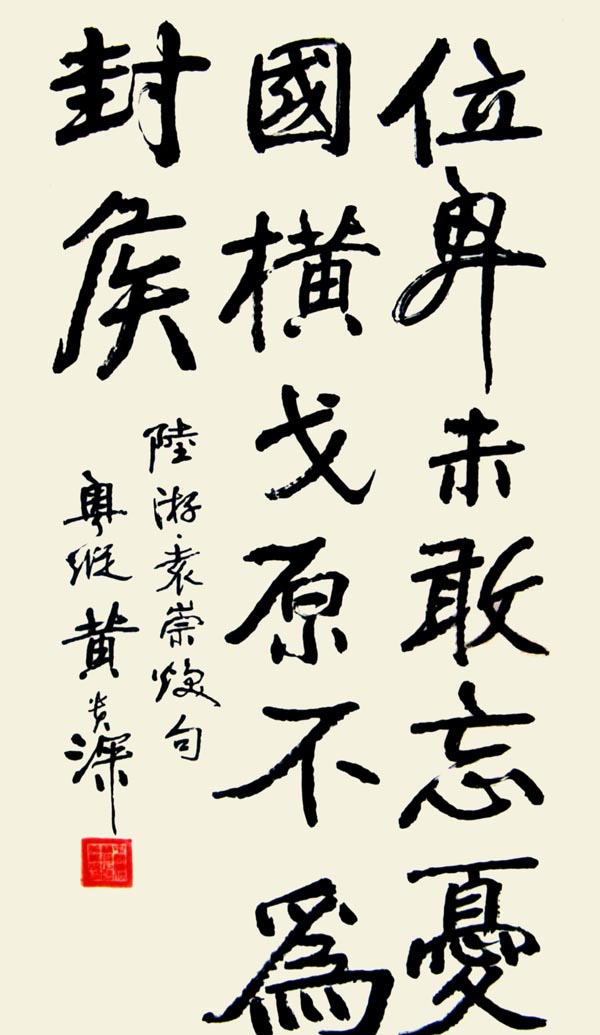 位卑未敢忘憂
國橫戈原不為
封侯
陸游·袁崇煥句
黄
深